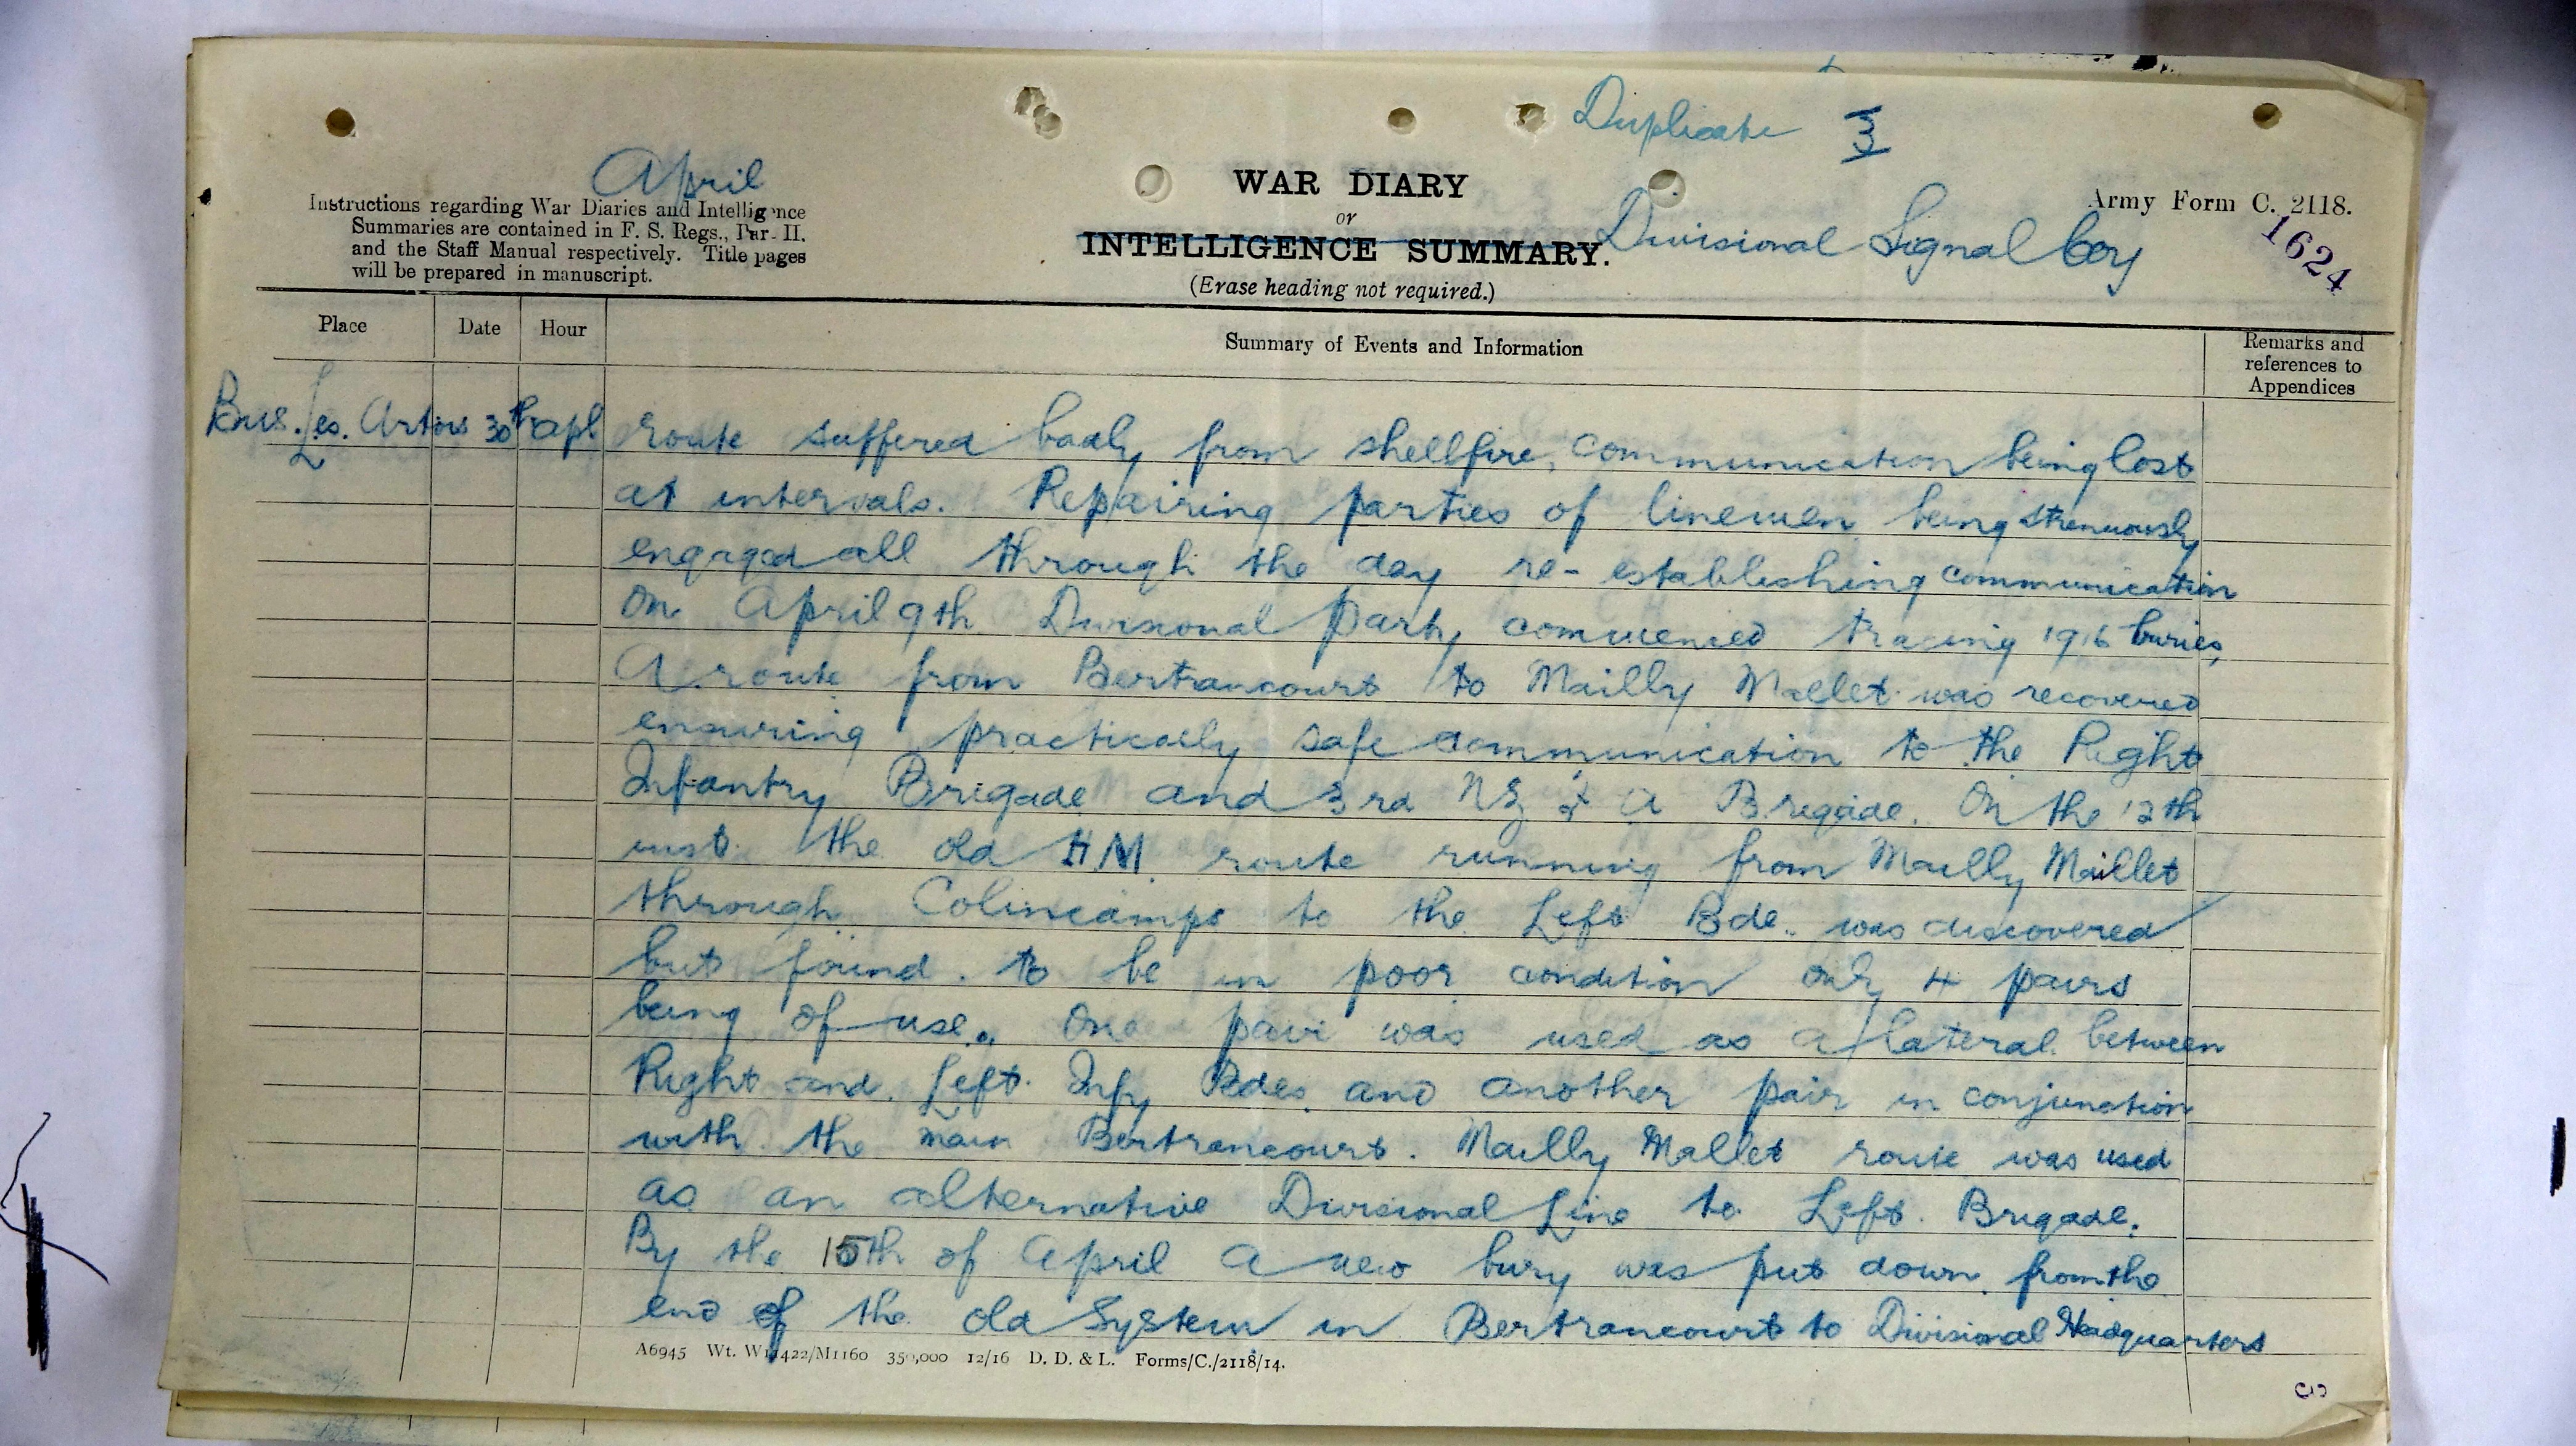 Duplicate 3
April
Instructions regarding War Diaries and Intelligence
Summaries are contained in F. S. Regs., Par. II.
and the Staff Manual respectively. Title pages
will be prepared in manuscript.
WAR DIARY
or
INTELLIGENCE SUMMARY.
(Erase heading not required.)
Divisional Signal Coy
Army Form C. 2118.
1624
Place Date Hour Summary of Events and Information Remarks and references to Appendices
Bus. Les. Artois 30th apl
route suffered badly from shellfire, communication being lost
at intervals. Repairing parties of linemen being strenuously
engaged all through the day re-establishing communication
On April 9th Divisional Party commenced tracing 1916 buries,
A route from Bertrancourt to Mailly Mallet was recovered
ensuring practically safe communication to the Right
Infantry Brigade and 3rd NZ F A Brigade. On the 12th
inst. the old H.M. route running from Mailly Maillet
through Colincamps to the Left Bde. was discovered
but found. to be in poor condition only 4 pairs
being of use. One pair was used as a lateral between
Right and Left Infy Bdes and another pair in conjunction
with the main Bertrancourt. Mailly Mallet route was used
as an alternative Divisional Line to Left Brigade.
By the 15th of April a new bury was put down from the
end of the old System in Bertrancourt to Divisional Headquarters
A6945 Wt. W11422/M1160 350,000 12/16 D. D. & L. Forms/C./2118/14.